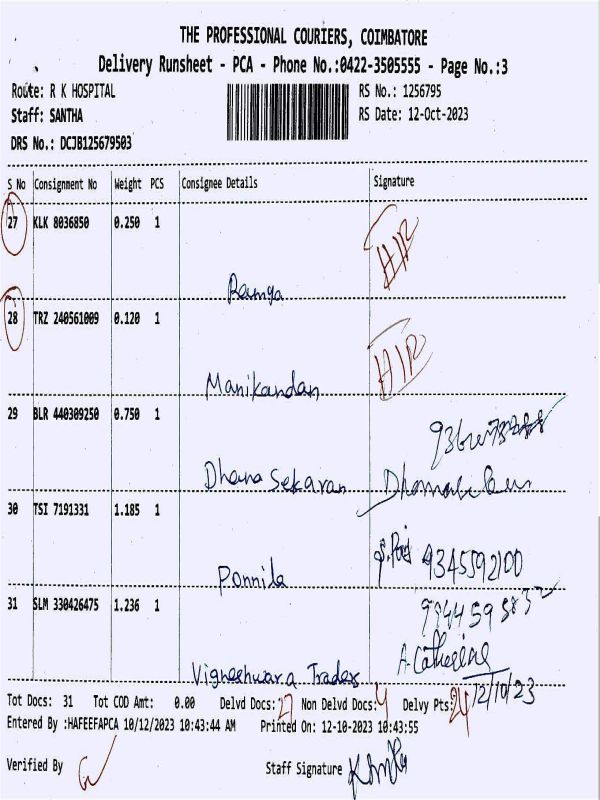 THE PROFESSIONAL COURIERS, COIMBATORE
Delivery Runsheet - PCA - Phone No.:0422-3505555 - Page No.:3
Route: R K HOSPITAL RS No.: 1256795
Staff: SANTHA RS Date: 12-Oct-2023
DRS No.: DCJB125679503
S No Consignment No Weight PCS Consignee Details Signature
27 KLK 8036850 0.250 1
Ramya
28 TRZ 240561009 0.120 1
Manikandan
29 BLR 440309250 0.750 1
Dhana Sekaran
30 TSI 7191331 1.185 1
Ponnila 9345592100
31 SLM 330426475 1.236 1
A. Catherine
Vigneshwara Traders 12/10/23
Tot Docs: 31 Tot COD Amt: 0.00 Delvd Docs: 27 Non Delvd Docs: 4 Delvy Pts:
Entered By :HAFEEFAPCA 10/12/2023 10:43:44 AM Printed On: 12-10-2023 10:43:55
Verified By Staff Signature